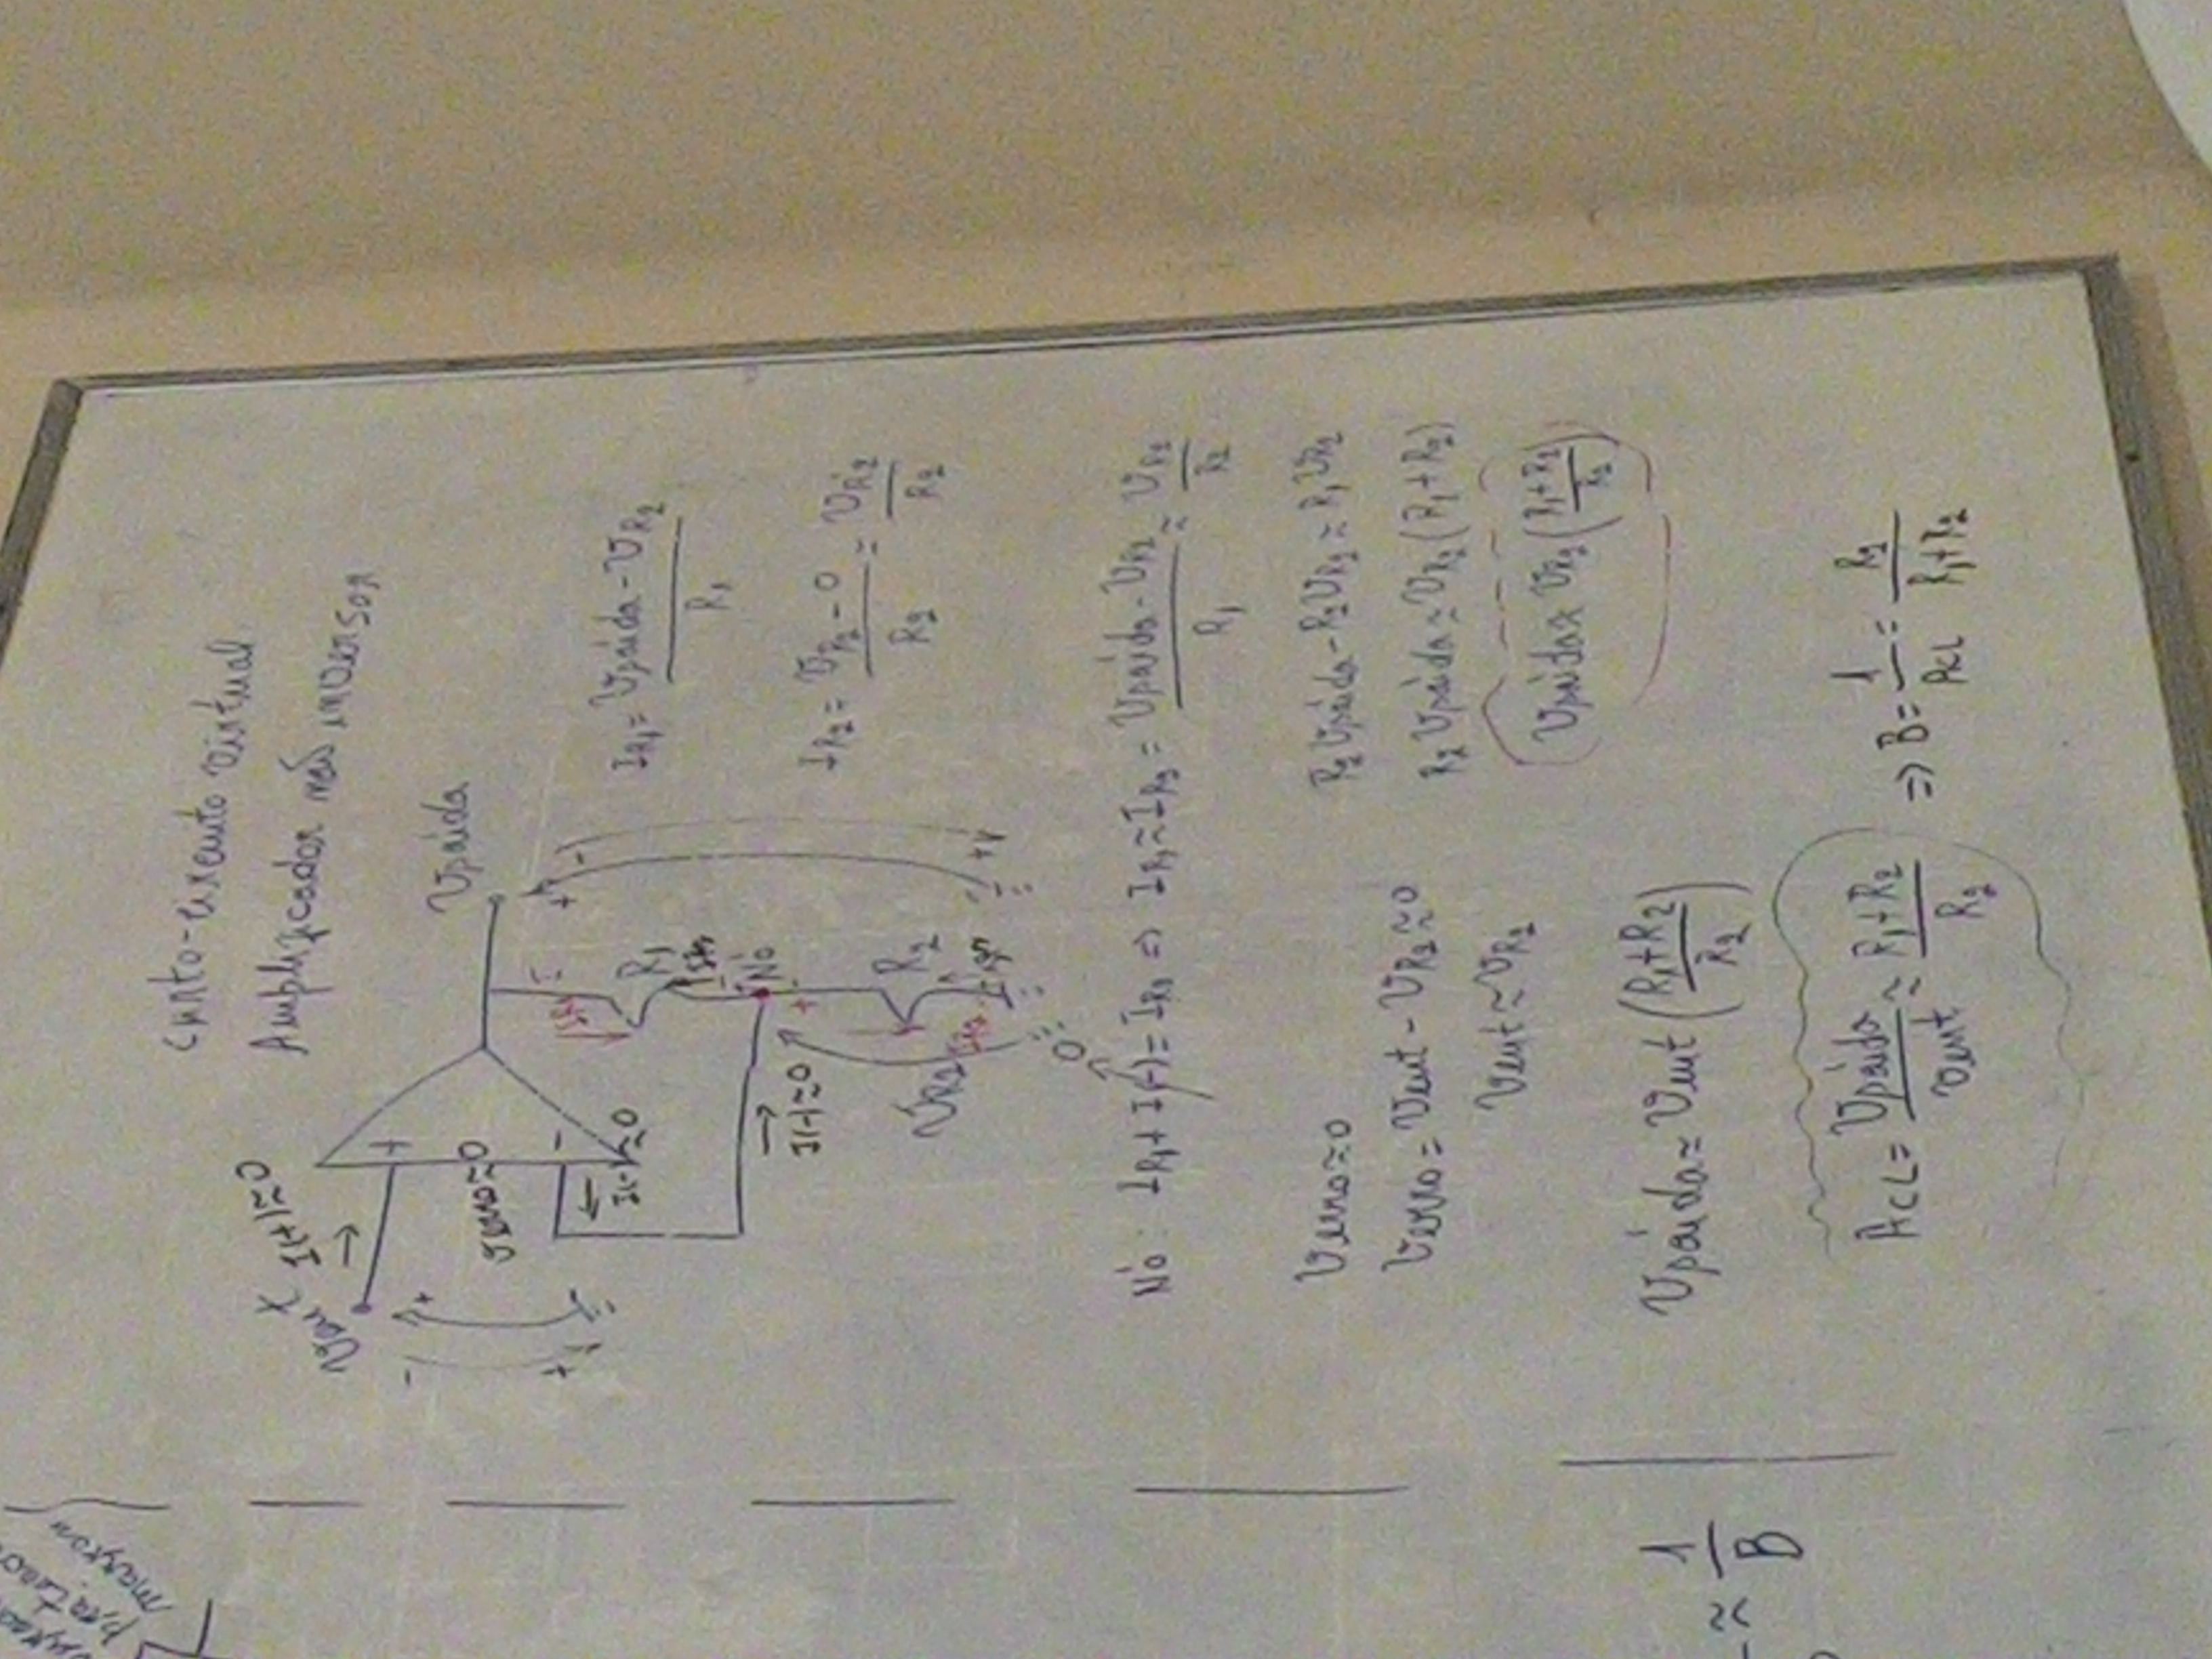 curto-circuito virtual
Amplificador não inversor
Vent I(+)≈0
+
- +
Vsaída
Verro≈0
+ -
I(-)≈0
IR1
+ -
R1
IR1 = (Vsaída - VR2) / R1
Nó
I(-)≈0
+
IR2 = (VR2 - 0) / R2 = VR2 / R2
R2
VR2
IR2
+
0
Nó: IR1 + I(-) = IR2 ⇒ IR1 ≈ IR2 = (Vsaída - VR2) / R1 ≈ VR2 / R2
Verro≈0
Verro = Vent - VR2 ≈ 0
Vent ≈ VR2
R2 Vsaída - R2 VR2 ≈ R1 VR2
R2 Vsaída ≈ VR2 (R1 + R2)
Vsaída ≈ VR2 ((R1 + R2) / R2)
Vsaída ≈ Vent ((R1 + R2) / R2)
≈ 1 / B
ACL = Vsaída / Vent ≈ (R1 + R2) / R2 ⇒ B = 1 / ACL = R2 / (R1 + R2)